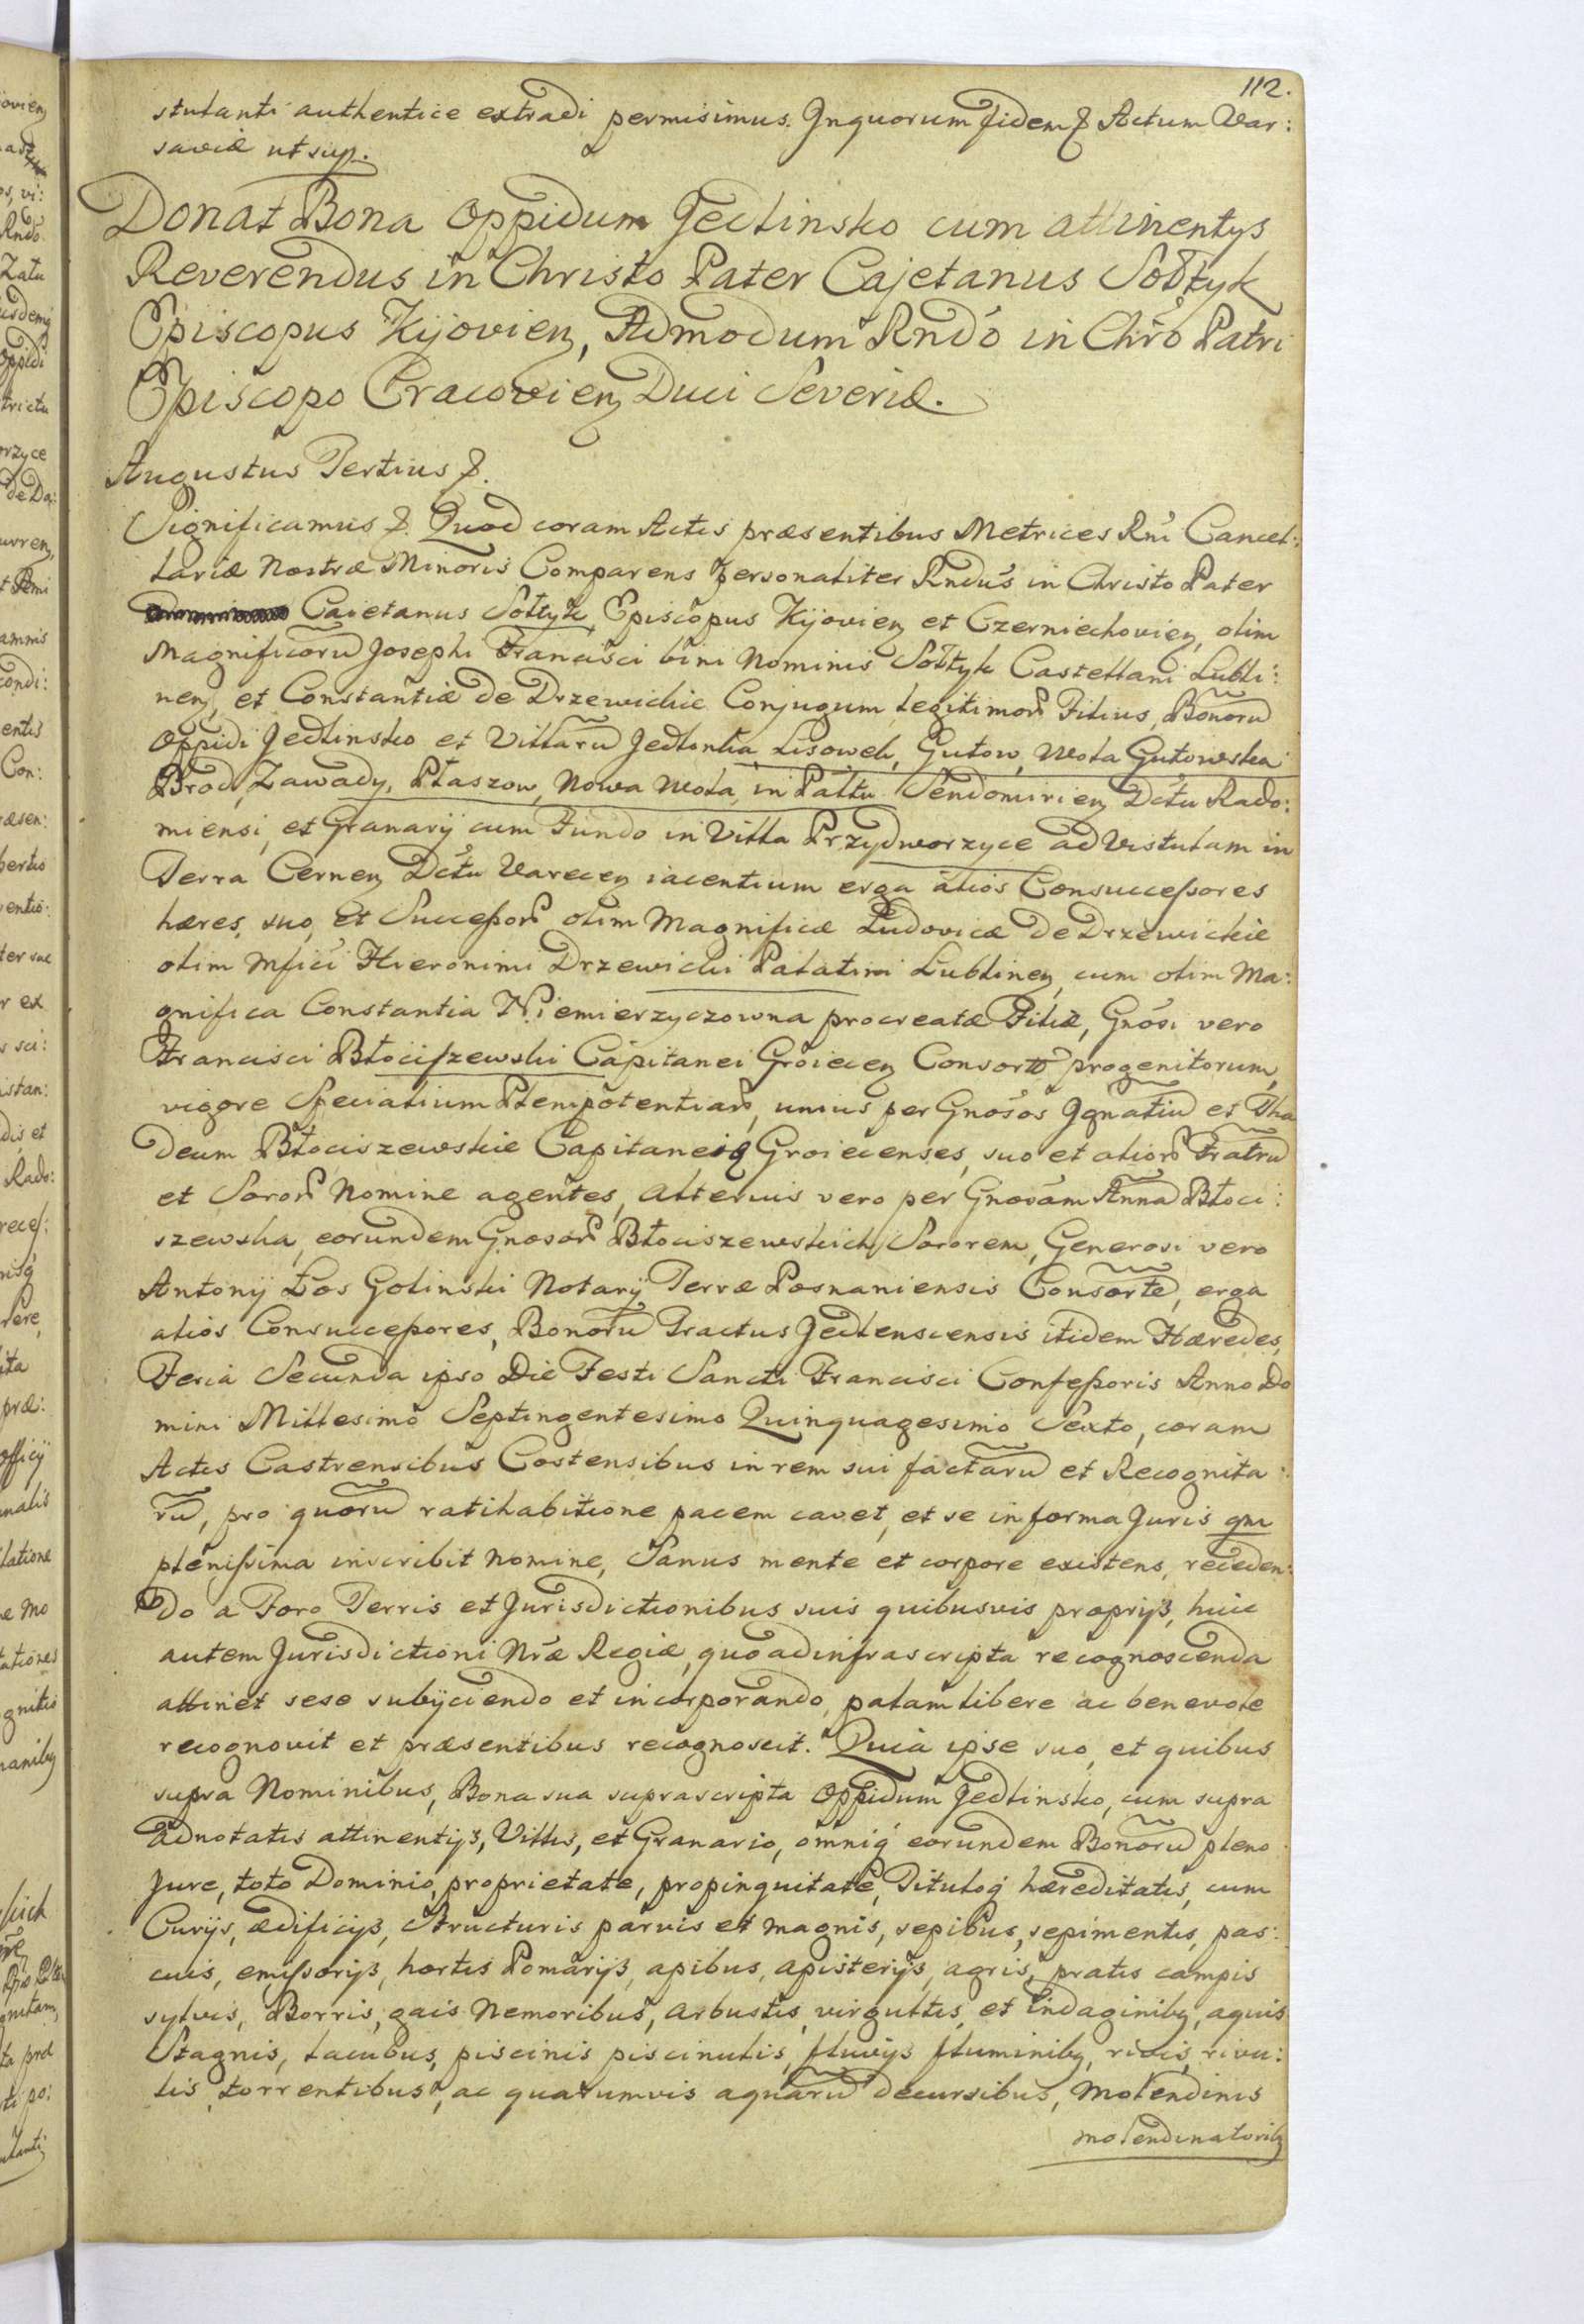 112.
stulanti authentice extradi permisimus. Inquorum fidem & Actum Var:
saviæ ut sup.
Donat Bona Oppidum Jedlinsko cum attinentys
Reverendus in Christo Pater Cajetanus Sołtyk
Episcopus Kijovien, Admodum Rndo in Chro Patri
Episcopo Cracovien Duci Severiæ.
Augustus Tertius &.
Significamus &. Quod coram Actis præsentibus Metrices Rni Cancel:
lariæ Nostræ Minoris Comparens personaliter Rndus in Christo Pater
Caietanus Sołtyk, Episcopus Kijovien et Czerniechovien, olim
Magnificorū Josephi Francisci bini Nominis Sołtyk Castellani Lubli:
nen, et Constantiæ de Drzewickie Conjugum legitimor Filius, Bonorū
Oppidi Jedlinsko et Villarū Jedlonka, Lisowek, Gutow, Wola Gutowska
Brod, Zawady, Płaszow, Nowa Wola, in Pałtu Sendomirien Dctu Rado:
miensi, et Granarÿ cum Fundo in Villa Przydworzyce ad Vistulam in
Terra Cernen Dctu Varecen iacentium erga alios Consuccessores
hæres, suo, et Successor olim Magnificæ Ludovicæ de Drzewickie
olim Mfici Hieronimi Drzewicki Palatini Lublinen, cum olim Ma:
gnifica Constantia Niemierzyczowna procreatæ Filiæ, Gnosi vero
Francisci Błociszewski Capitanei Groiecen Consort progenitorum,
vigore Specialium Plenipotentiar, unius per Gnosos Ignatiū et Tha
deum Błociszewskie Capitaneiq Groiecenses, suo et alior Fratrū
et Soror Nomine agentes, alterius vero per Gnosam Annā Błoci:
szewska, eorundem Gnosor Błociszewskich Sororem, Generosi vero
Antonij Łos Golinski Notarÿ Terræ Posnaniensis Consortē, erga
alios Consuccessores, Bonorū Tractus Jedlenscensis itidem Hæredes,
Feria Secunda ipso Die Festi Sancti Francisci Confessoris Anno Do
mini Millesimo Septingentesimo Quinquagesimo Sexto, coram
Actis Castrensibus Costensibus in rem sui factarū et Recognita:
rū, pro quorū ratihabitione pacem cavet, et se in forma Juris qm
plenissima inscribit nomine, Sanus mente et corpore existens, receden:
do a Foro Terris et Jurisdictionibus suis quibusvis proprÿs, huic
autem Jurisdictioni Nræ Regiæ, quoad infrascripta recognoscenda
attinet sese subÿciendo et incorporando, palam libere ac benevole
recognovit et præsentibus recognoscit. Quia ipse suo, et quibus
supra Nominibus, Bona sua suprascripta Oppidum Jedlinsko, cum supra
adnotatis attinentÿs, Villis, et Granario, omniq eorundem Bonorū pleno
Jure, toto Dominio, proprietate, propinquitate, Tituloq hæreditatis, cum
Curÿs, ædificÿs, Structuris parvis et magnis, sepibus, sepimentis, pas:
cuis, emissorÿs, hortis Pomarÿs, apibus, apisterÿs, agris, pratis campis
sylvis, Borris, gais Nemoribus, arbustis, virgultis, et indaginibq, aquis
Stagnis, lacubus, piscinis piscinulis, fluvÿs fluminibq, rivis, rivu:
lis, torrentibus, ac quarumvis aquarū decursibus, molendinis
molendinatoribq